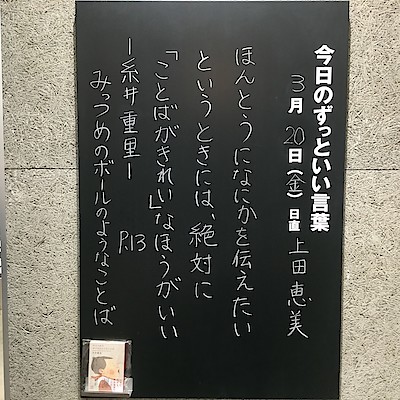 今日のずっといい言葉
3月20日(金)日直 上田恵美
ほんとうになにかを伝えたい
というときには、絶対に
「ことばがきれい」なほうがいい
ー糸井重里ー P.13
みっつめのボールのようなことば